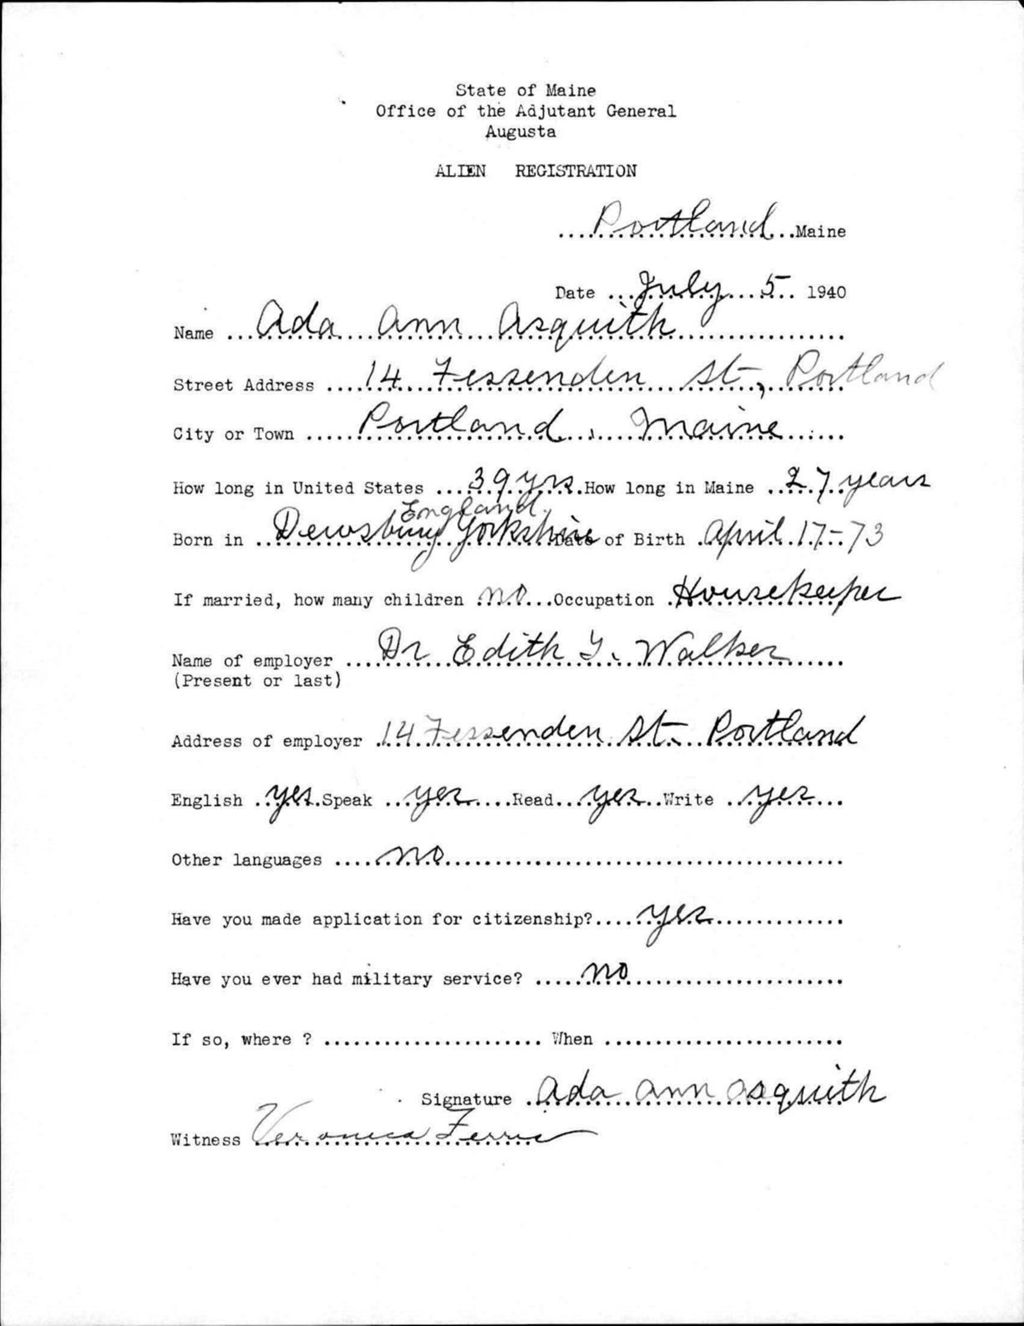 State of Maine
Office of the Adjutant General
Augusta
ALIEN REGISTRATION
Portland Maine
Date July 5 1940
Name Ada Ann Asquith
Street Address 14 Fessenden St, Portland
City or Town Portland, Maine
How long in United States 39 yrs. How long in Maine 27 years
England.
Born in Dewsbury Yorkshire Date of Birth April 17-73
If married, how many children no Occupation Housekeeper
Name of employer Dr Edith I. Walker
(Present or last)
Address of employer 14 Fessenden St. Portland
English yes Speak yes Read yes Write yes
Other languages no
Have you made application for citizenship? yes
Have you ever had military service? no
If so, where ? When
Signature Ada Ann Asquith
Witness Veronica